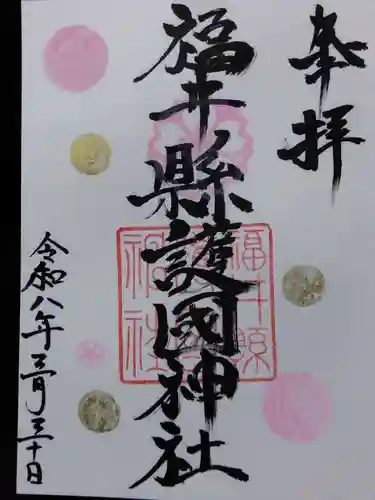 奉拝
福井縣護國神社
福井縣
護國神社
令和八年三月三十日